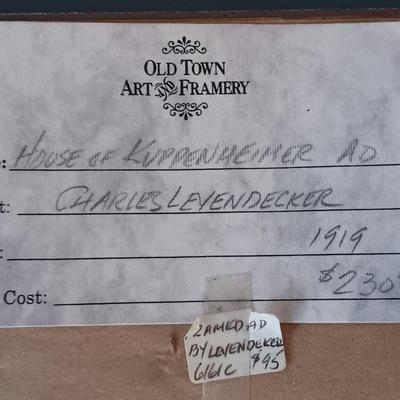 OLD TOWN
ART AND FRAMERY
: HOUSE OF KUPPENHEIMER AD
t: CHARLES LEYENDECKER
: 1919
Cost: $230
BY LEYENDEKER
6161C $95